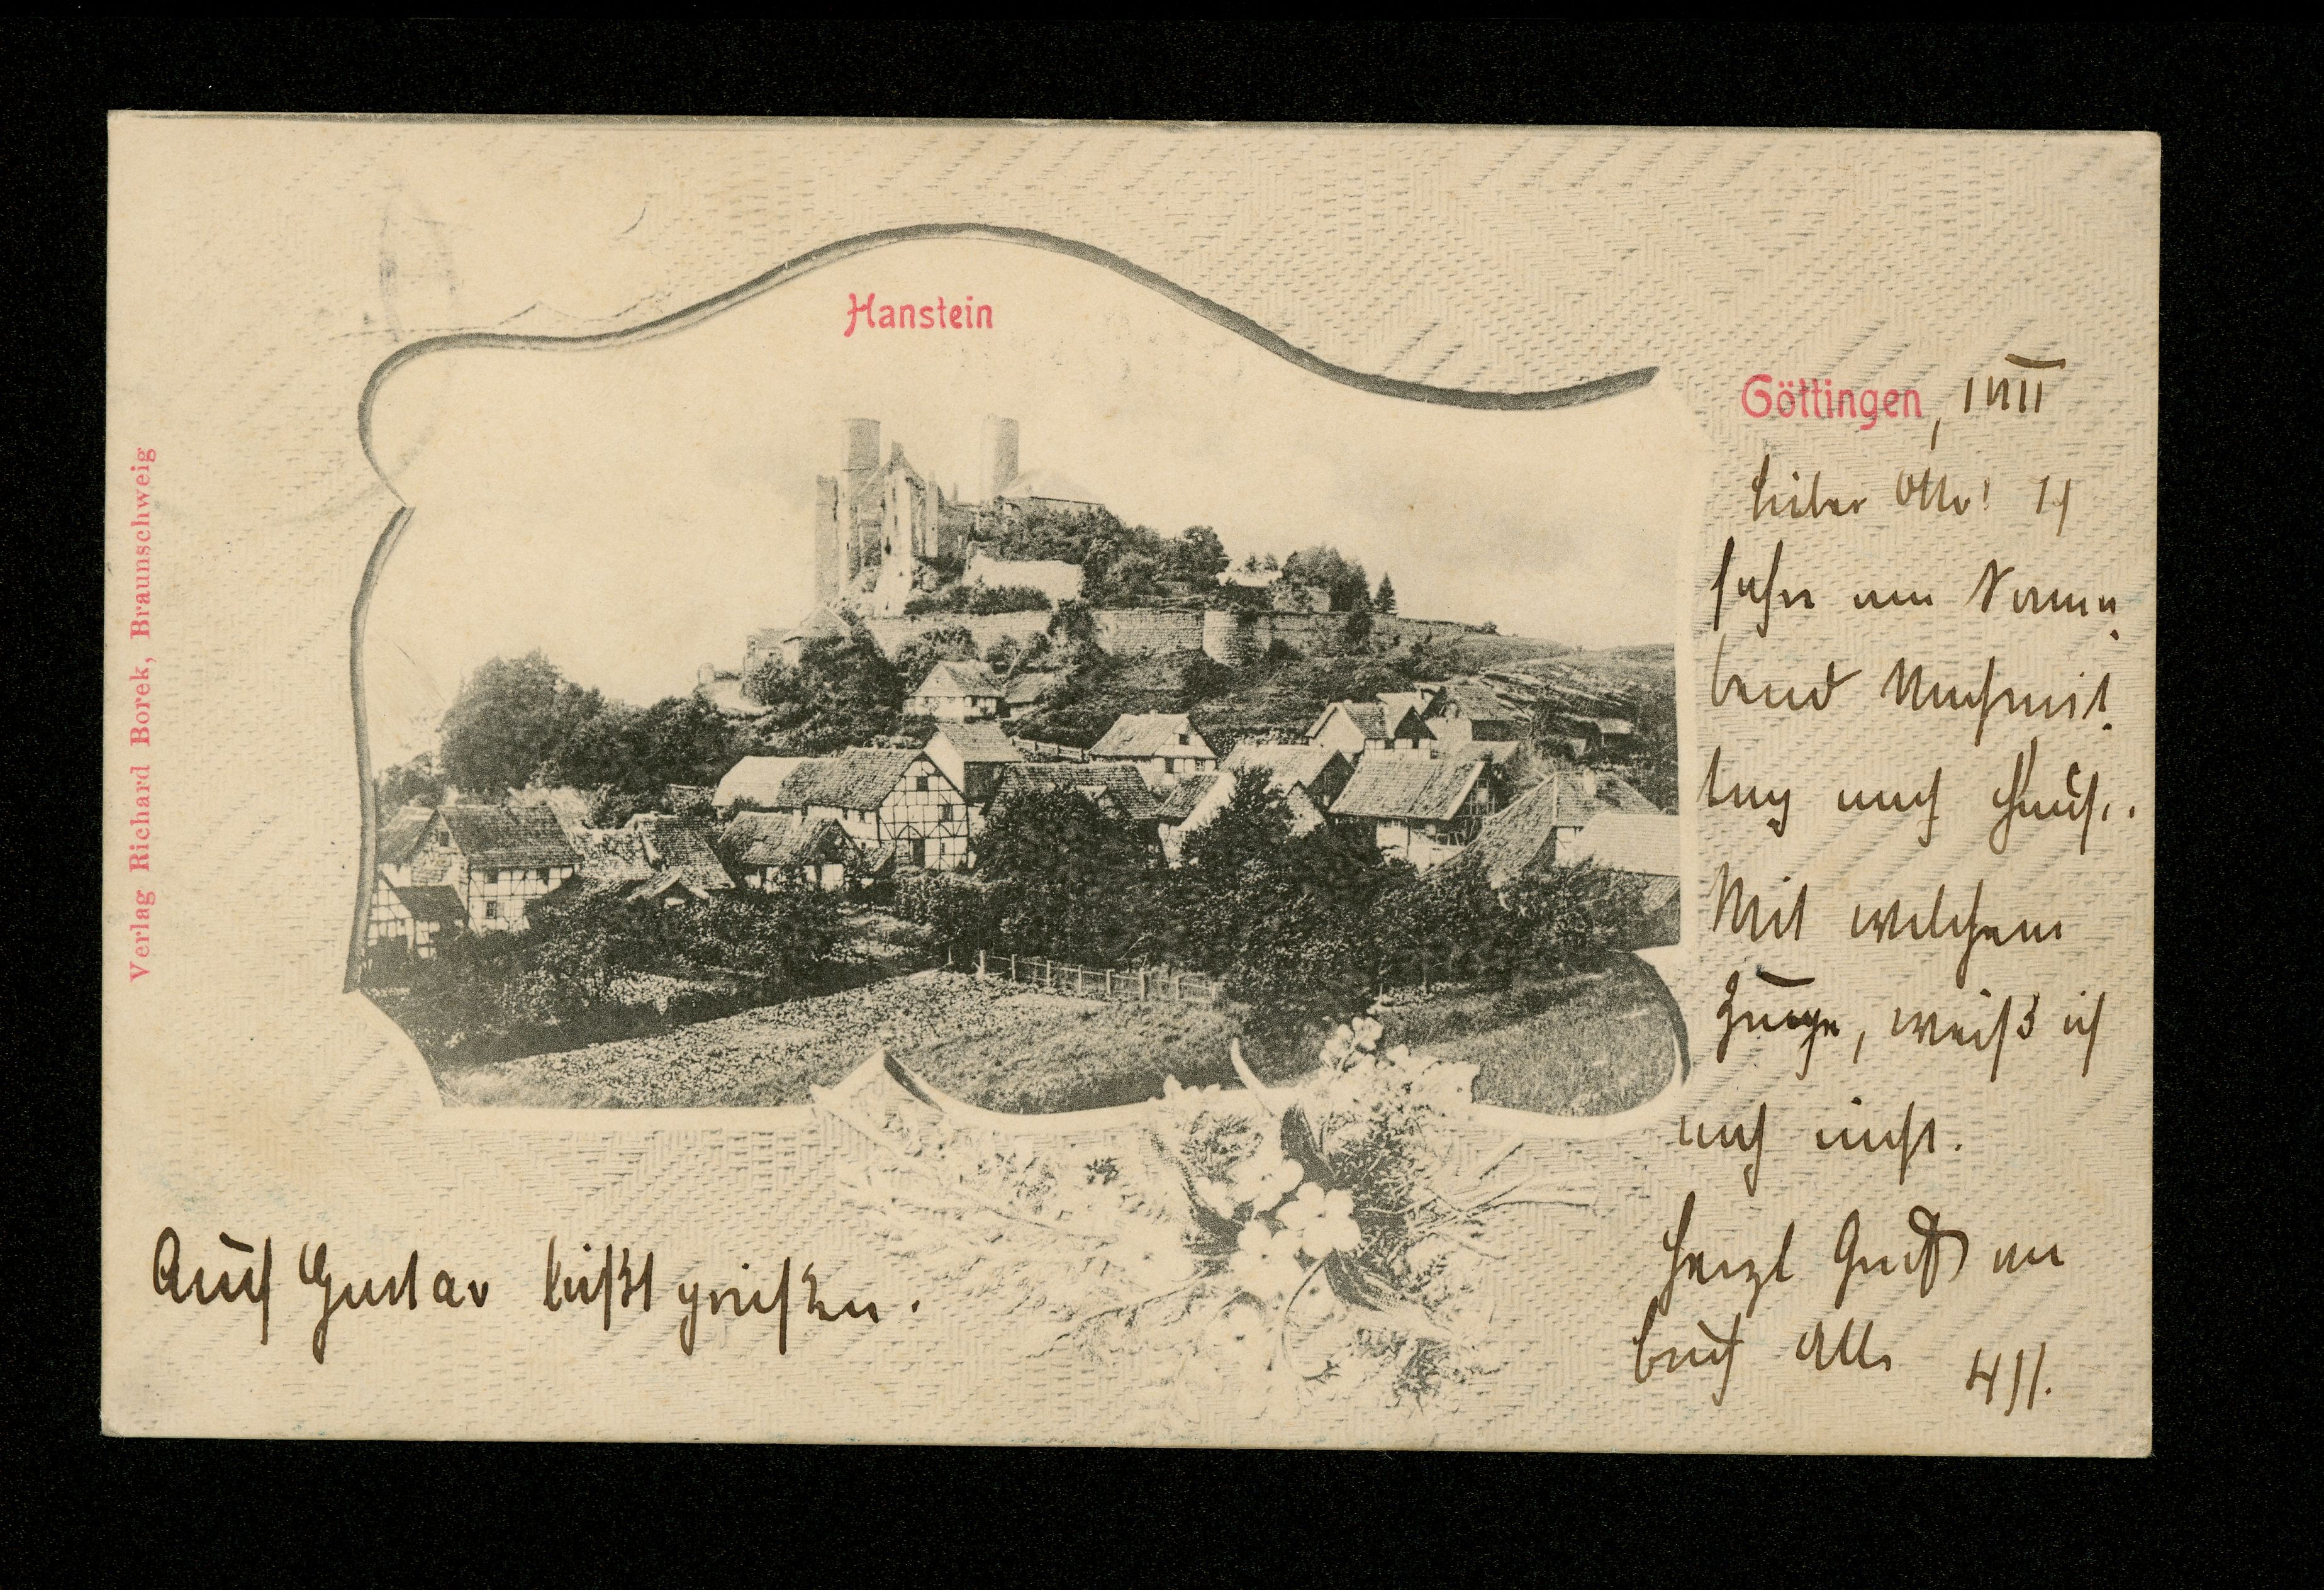 Hanstein
Verlag Richard Borek, Braunschweig
Göttingen,
Lieber Otto! Ich
fahre am Sonna-
bend Nachmit-
tag nach Hause.
Mit welchem
Zuge, weiß ich
noch nicht.
Herzl Gruß an
Euch Alle
Auch Gustav läßt grüßen.